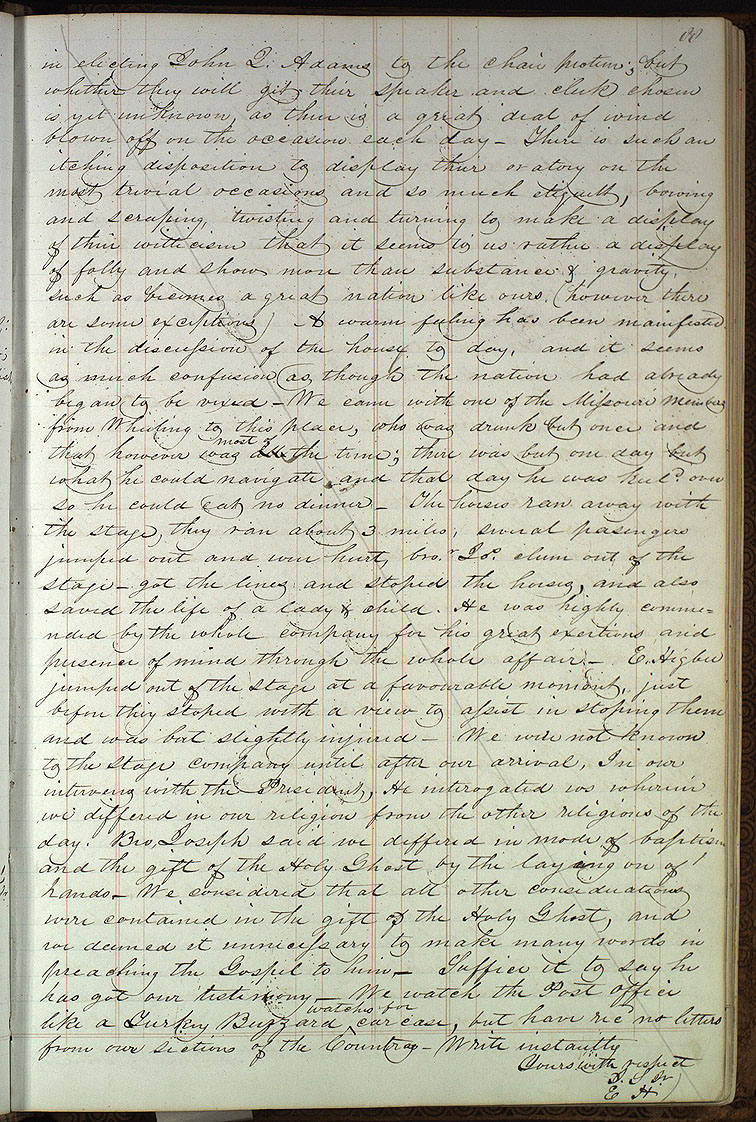 88
in electing John Q. Adams to the chair protem; but
whether they will git their speaker and clerk chosen
is yet unknown, as their is a great deal of wind
blown off on the occasion each day— There is such an
itching disposition to display their oratory on the
most trivial occasions and so much etiquett, bowing
and scraping, twisting and turning to make a display
of their witticism that it seems to us rather a display
of folly and show more than substance & gravity,
such as becomes a great nation like ours, (however there
are some exceptions) A warm feeling has been manifested
in the discussion of the house to day, and it seems
as much confusion as though the nation had already
began to be vexed— We came with one of the Missouri members
from Wheeling to this place, who was drunk but once and
that however was most of the time; there was but one day but
what he could navigate and that day he was keeld. over
so he could eat no dinner— The horses ran away with
the stage, they ran about 3 miles; several passengers
jumped out and were hurt, bror. Jos. clum out of the
stage— got the lines and stoped the horses, and also
saved the life of a lady & child. He was highly comme=
nded by the whole company for his great exertions and
presence of mind through the whole affair— E. Higbee
jumped out of the stage at a favourable moment, just
before they stoped with a view to assist in stoping them
and was but slightly injured— We were not known
to the stage company until after our arrival, In our
interview with the President, He interogated us wherein
we differed in our religion from the other religions of the
day. Bro. Joseph said we differed in mode of baptism
and the gift of the Holy Ghost by the laying on of
hands— We considered that all other considerations
were contained in the gift of the Holy Ghost, and
we deemed it unnecessary to make many words in
preaching the Gospel to him— Suffice it to say he
has got our testimony— We watch the Post office
like a Turkey Buzzard watches for carcase, but have recd no letters
from our sections of the Country— Write instantly
Yours with respect
J. S. Jr
E H.